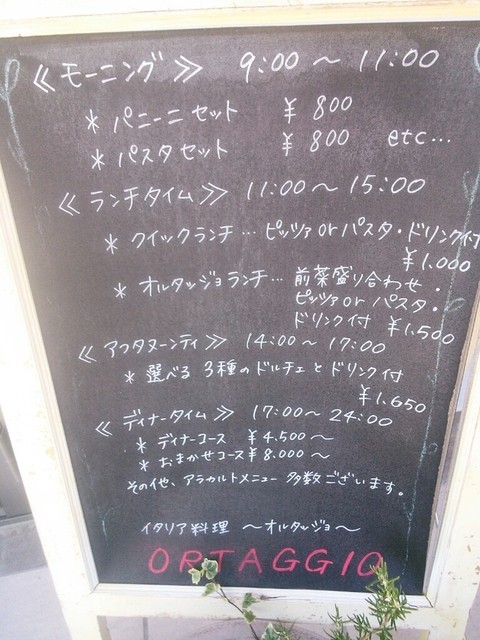 ≪モーニング≫ 9:00～11:00
＊パニーニセット ￥800
＊パスタセット ￥800 etc…
≪ランチタイム≫ 11:00～15:00
＊クイックランチ…ピッツァorパスタ・ドリンク付
￥1.000
＊オルタッジョランチ…前菜盛り合わせ・
ピッツァorパスタ・
ドリンク付 ￥1.500
≪アフタヌーンティ≫ 14:00～17:00
＊選べる3種のドルチェとドリンク付
￥1.650
≪ディナータイム≫ 17:00～24:00
＊ディナーコース ￥4.500～
＊おまかせコース￥8.000～
その他、アラカルトメニュー多数ございます。
イタリア料理 ～オルタッジョ～
ORTAGGIO